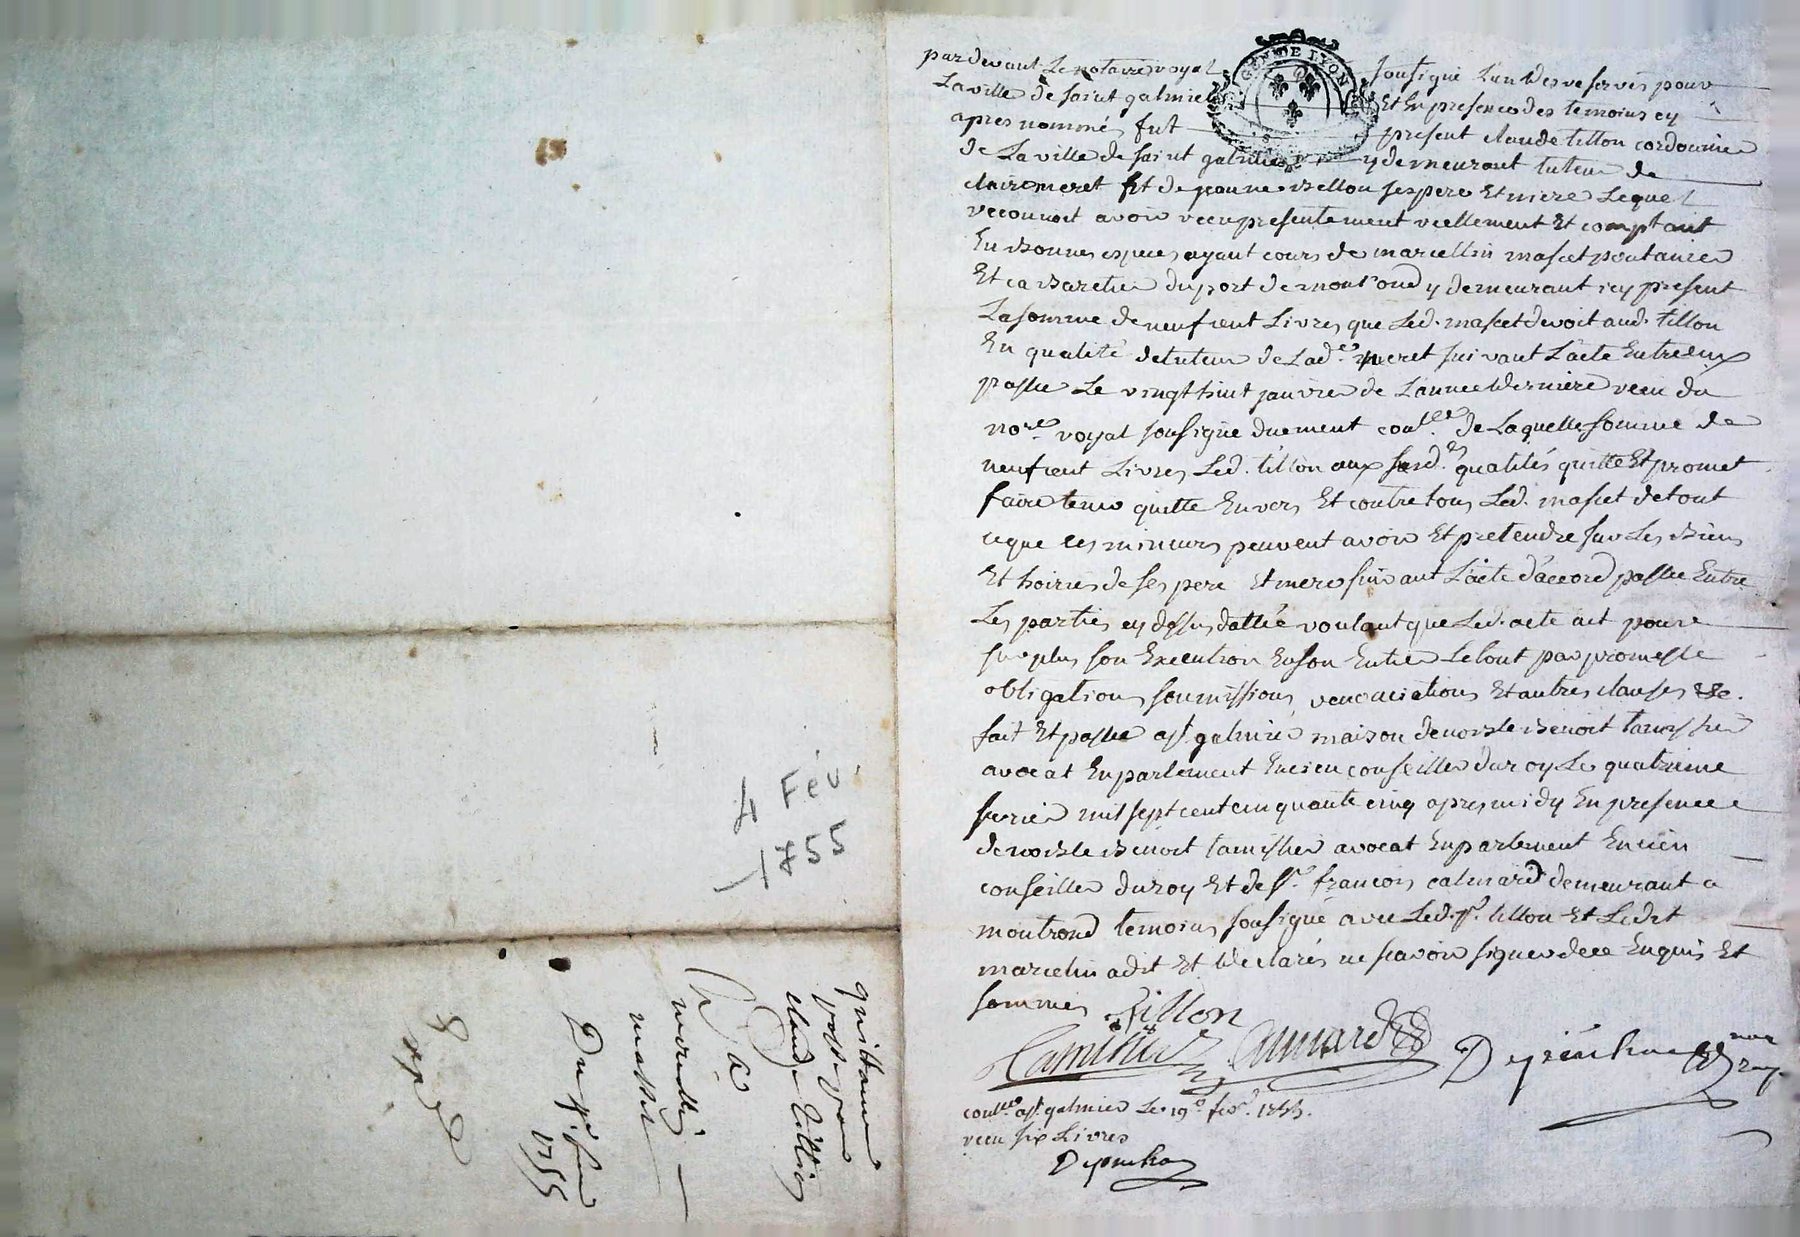 GEN DE LYON
pardevant Le notaire royal soussigné L'un des reservés pour
La ville de saint galmier Et En presences des temoins cy
apres nommés fut present claude tillon cordonnier
de La ville de saint galmier y demeurant tuteur de
claire meret et de jeanne ses pere Et mere Lequel
reconnoit avoir receu presentement reellement Et comptant
En bonnes especes ayant cours de marcellin masset pontanier
Et cabaretier du port de montrond y demeurant icy present
La somme de neuf cent Livres que Led. masset devoit aud. tillon
En qualité de tuteur de Lad. meret suivant L'acte Entre eux
passé Le vingt huit janvier de L'année derniere receu du
nore. royal soussigné duement coulee. de Laquelle somme de
neuf cent Livres Led. tillon aux susd. qualités quitte Et promet
faire tenir quitte Envers Et contre tous Led. masset de tout
ce que ces mineurs peuvent avoir Et pretendre sur Les biens
Et hoiries de ses pere Et mere suivant L'acte d'accord passé Entre
Les parties cy dessus datté voulant que Led. acte ait pour
surplus son Execution En son Entier Le tout par promesse
obligations soumissions renonciations Et autres clauses
fait Et passé a st. galmier maison de noble Benoit
avocat En parlement Encien conseiller du roy Le quatrieme
fevrier mil sept cent cinquante cinq apres midy En presence
de noble Benoit avocat En parlement Encien
conseiller du roy Et de sr. francois calmard demeurant a
montrond temoins soussigné avec Led. sr. tillon Et Ledit
marcelin a dit Et declarés ne scavoir signer de ce Enquis Et
sommés Tillon
Calmard
coulé. a st. galmier Le 19e fevr. 1755.
receu six Livres
4 Fev.
1755
quittance
claude Tillon
a
marcellin
masset
Du 4e. fev
1755